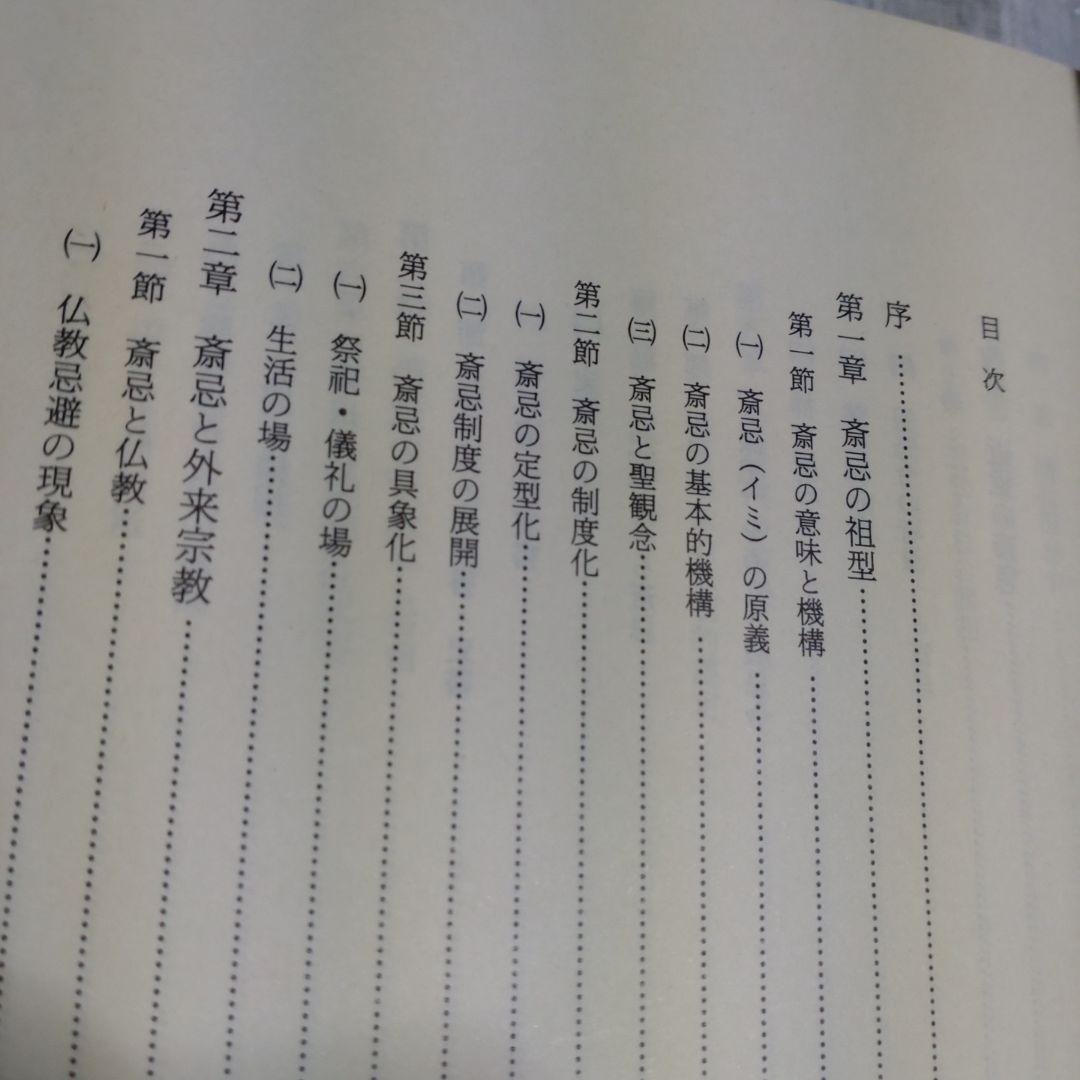 目次
序
第一章　斎忌の祖型
第一節　斎忌の意味と機構
㈠　斎忌（イミ）の原義
㈡　斎忌の基本的機構
㈢　斎忌と聖観念
第二節　斎忌の制度化
㈠　斎忌の定型化
㈡　斎忌制度の展開
第三節　斎忌の具象化
㈠　祭祀・儀礼の場
㈡　生活の場
第二章　斎忌と外来宗教
第一節　斎忌と仏教
㈠　仏教忌避の現象